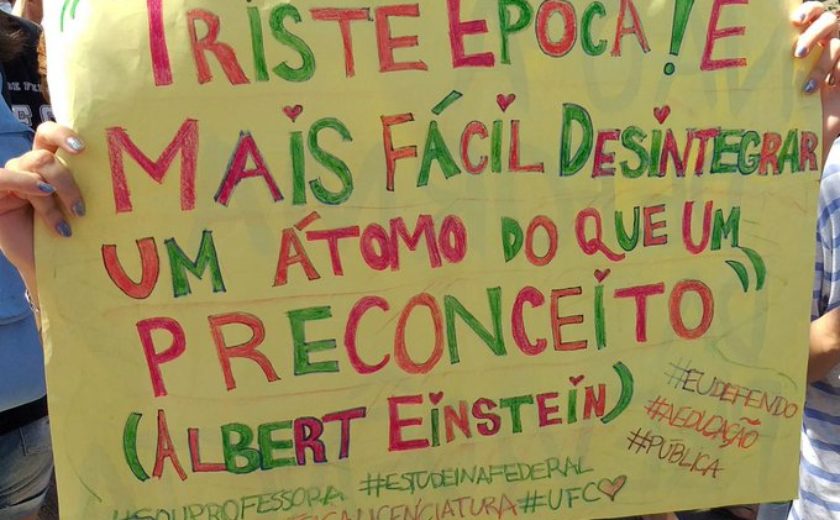 "TRISTE ÉPOCA! É
MAIS FÁCIL DESINTEGRAR
UM ÁTOMO DO QUE UM
PRECONCEITO"
(ALBERT EINSTEIN)
#EUDEFENDO
#AEDUCAÇÃO
#PÚBLICA
#SOUPROFESSORA #ESTUDEINAFEDERAL
LICENCIATURA #UFC♡